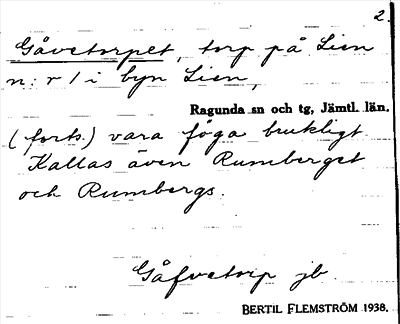 2.
Gåvetorpet, torp på Lien
n:r 1 i byn Lien,
Ragunda sn och tg, Jämtl. län.
(forts.) vara föga brukligt.
Kallas även Rumberget
och Rumbergs.
Gåfvetorp jb.
BERTIL FLEMSTRÖM 1938.